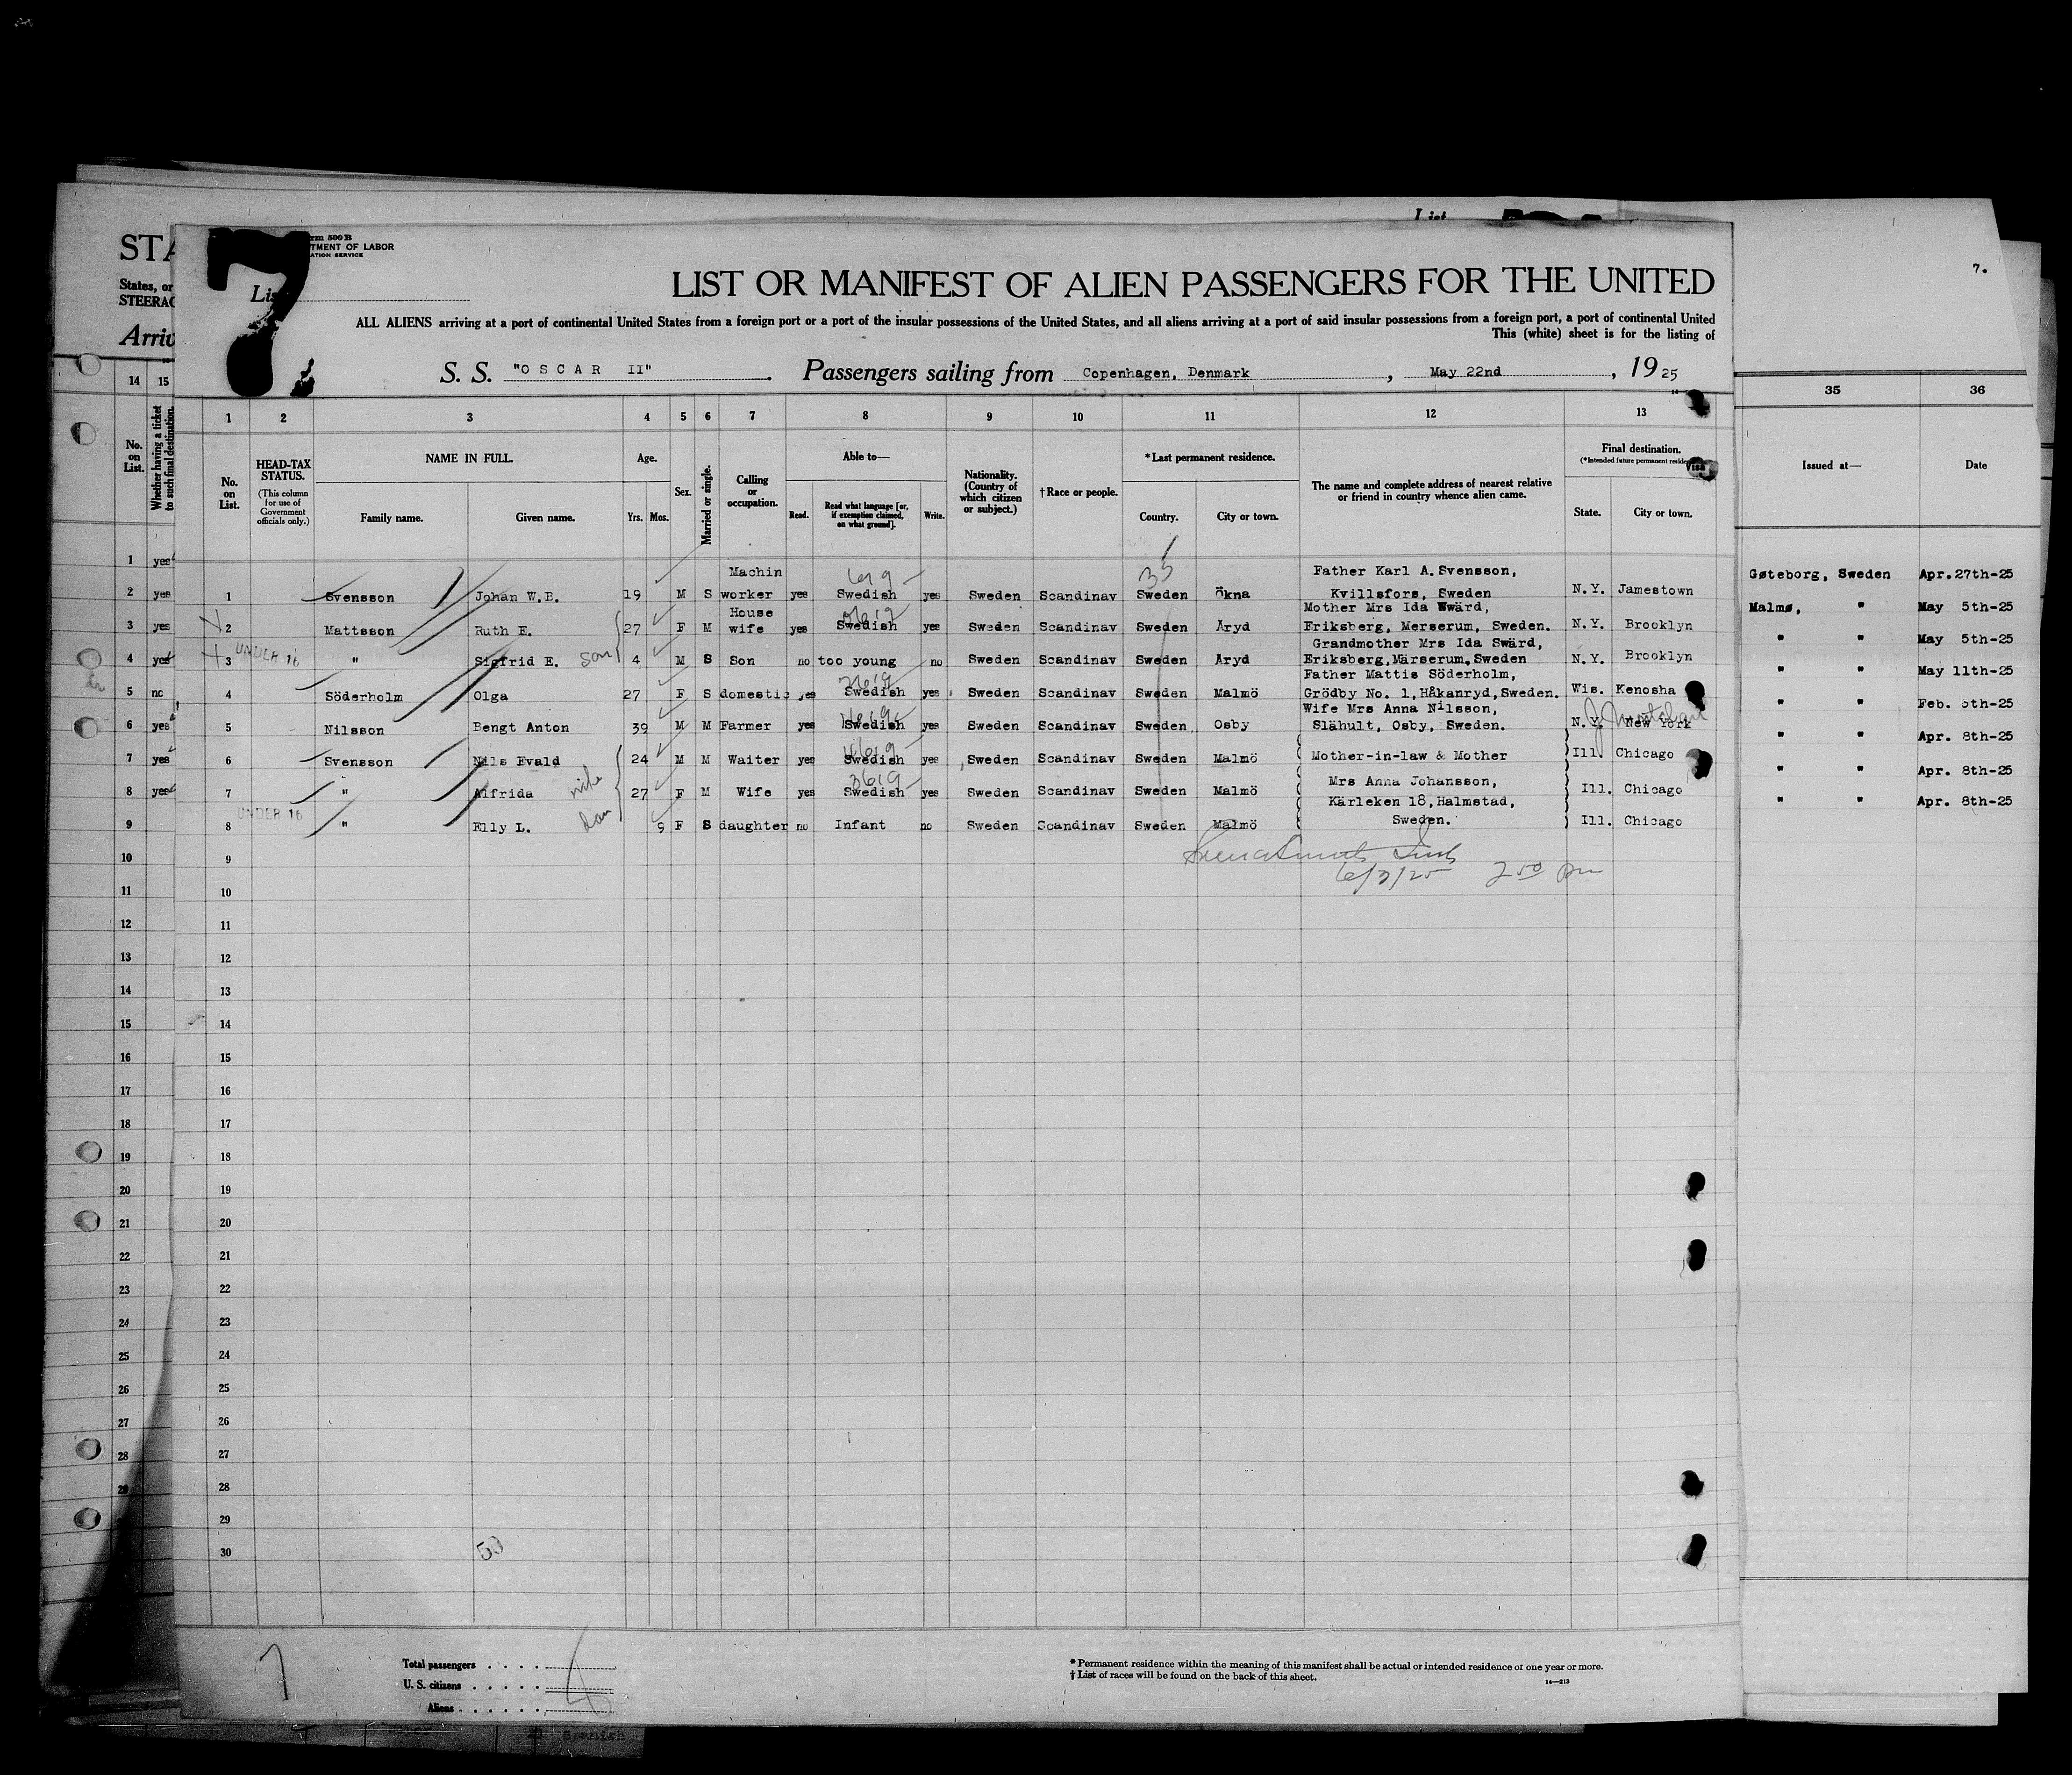 List
7.
STA
States, or
STEERAG
Arriv
7
rm 500 B
TMENT OF LABOR
ATION SERVICE
Lis
LIST OR MANIFEST OF ALIEN PASSENGERS FOR THE UNITED
ALL ALIENS arriving at a port of continental United States from a foreign port or a port of the insular possessions of the United States, and all aliens arriving at a port of said insular possessions from a foreign port, a port of continental United
This (white) sheet is for the listing of
S. S. "OSCAR II" . Passengers sailing from Copenhagen, Denmark , May 22nd , 1925
14 15 1 2 3 4 5 6 7 8 9 10 11 12 13 35 36
No. on List.
Whether having a ticket to such final destination.
No. on List.
HEAD-TAX STATUS.
(This column for use of Government officials only.)
NAME IN FULL.
Family name. Given name.
Age.
Yrs. Mos.
Sex.
Married or single.
Calling or occupation.
Able to—
Read. Read what language [or, if exemption claimed, on what ground]. Write.
Nationality. (Country of which citizen or subject.)
† Race or people.
* Last permanent residence.
Country. City or town.
The name and complete address of nearest relative or friend in country whence alien came.
Final destination.
State. City or town.
Visa
Issued at— Date
1 Svensson Johan W.E. 19 M S Machin worker yes Swedish yes Sweden Scandinav Sweden Ökna Father Karl A. Svensson, Kvillsfors, Sweden N.Y. Jamestown Gøteborg, Sweden Apr. 27th-25
2 Mattsson Ruth E. 27 F M House wife yes Swedish yes Sweden Scandinav Sweden Aryd Mother Mrs Ida Swärd, Eriksberg, Merserum, Sweden. N.Y. Brooklyn Malmø, " May 5th-25
3 UNDER 16 " Sigfrid E. son 4 M S Son no too young no Sweden Scandinav Sweden Aryd Grandmother Mrs Ida Swärd, Eriksberg, Märserum, Sweden N.Y. Brooklyn " " May 5th-25
4 Söderholm Olga 27 F S domestic yes Swedish yes Sweden Scandinav Sweden Malmö Father Mattis Söderholm, Grödby No. 1, Håkanryd, Sweden. Wis. Kenosha " " May 11th-25
5 Nilsson Bengt Anton 39 M M Farmer yes Swedish yes Sweden Scandinav Sweden Osby Wife Mrs Anna Nilsson, Slähult, Osby, Sweden. N.Y. New York " " Feb. 5th-25
6 Svensson Nils Evald 24 M M Waiter yes Swedish yes Sweden Scandinav Sweden Malmö Mother-in-law & Mother Ill. Chicago " " Apr. 8th-25
7 " Alfrida wife 27 F M Wife yes Swedish yes Sweden Scandinav Sweden Malmö Mrs Anna Johansson, Ill. Chicago " " Apr. 8th-25
UNDER 16
8 " Elly L. dau 9 F S daughter no Infant no Sweden Scandinav Sweden Malmö Kärleken 18, Halmstad, Sweden. Ill. Chicago " " Apr. 8th-25
1 yes
2 yes
3 yes
4 yes
5 no
6 yes
7 yes
8 yes
9
10 9
11 10
12 11
13 12
14 13
15 14
16 15
17 16
18 17
19 18
20 19
21 20
22 21
23 22
24 23
25 24
26 25
27 26
28 27
29 28
29
30
50
Total passengers
U. S. citizens
Aliens
* Permanent residence within the meaning of this manifest shall be actual or intended residence of one year or more.
† List of races will be found on the back of this sheet.
14—213